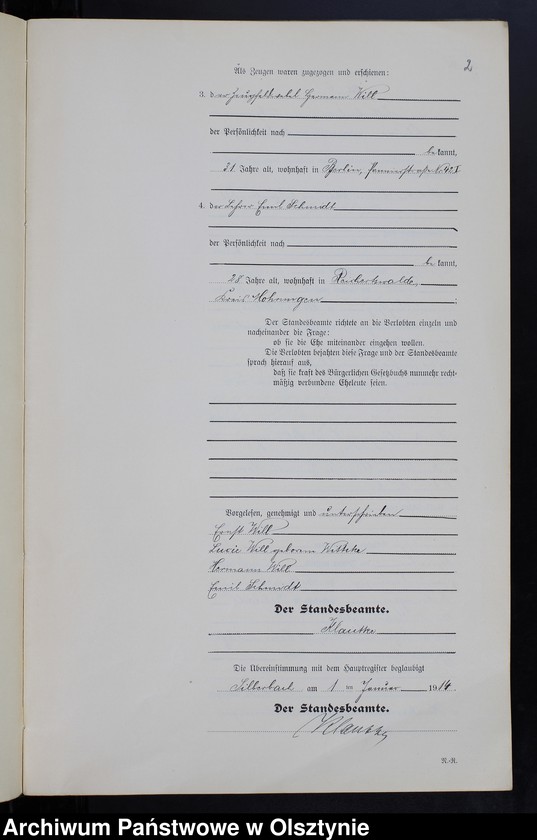 2
Als Zeugen waren zugezogen und erschienen:
3. der Hermann Will
der Persönlichkeit nach
be kannt,
31 Jahre alt, wohnhaft in Berlin,
4. der Lehrer Emil Schmidt
der Persönlichkeit nach
be kannt,
28 Jahre alt, wohnhaft in Reichertswalde,
Kreis Mohrungen ;
Der Standesbeamte richtete an die Verlobten einzeln und
nacheinander die Frage:
ob sie die Ehe miteinander eingehen wollen.
Die Verlobten bejahten diese Frage und der Standesbeamte
sprach hierauf aus,
daß sie kraft des Bürgerlichen Gesetzbuchs nunmehr recht-
mäßig verbundene Eheleute seien.
Vorgelesen, genehmigt und unterschrieben
Ernst Will
Lucie Will geboren Wittke
Hermann Will
Emil Schmidt
Der Standesbeamte.
Klautke
Die Übereinstimmung mit dem Hauptregister beglaubigt
Silberbach am 1 ten Januar 1914.
Der Standesbeamte.
Klautke
N.-R.
Archiwum Państwowe w Olsztynie